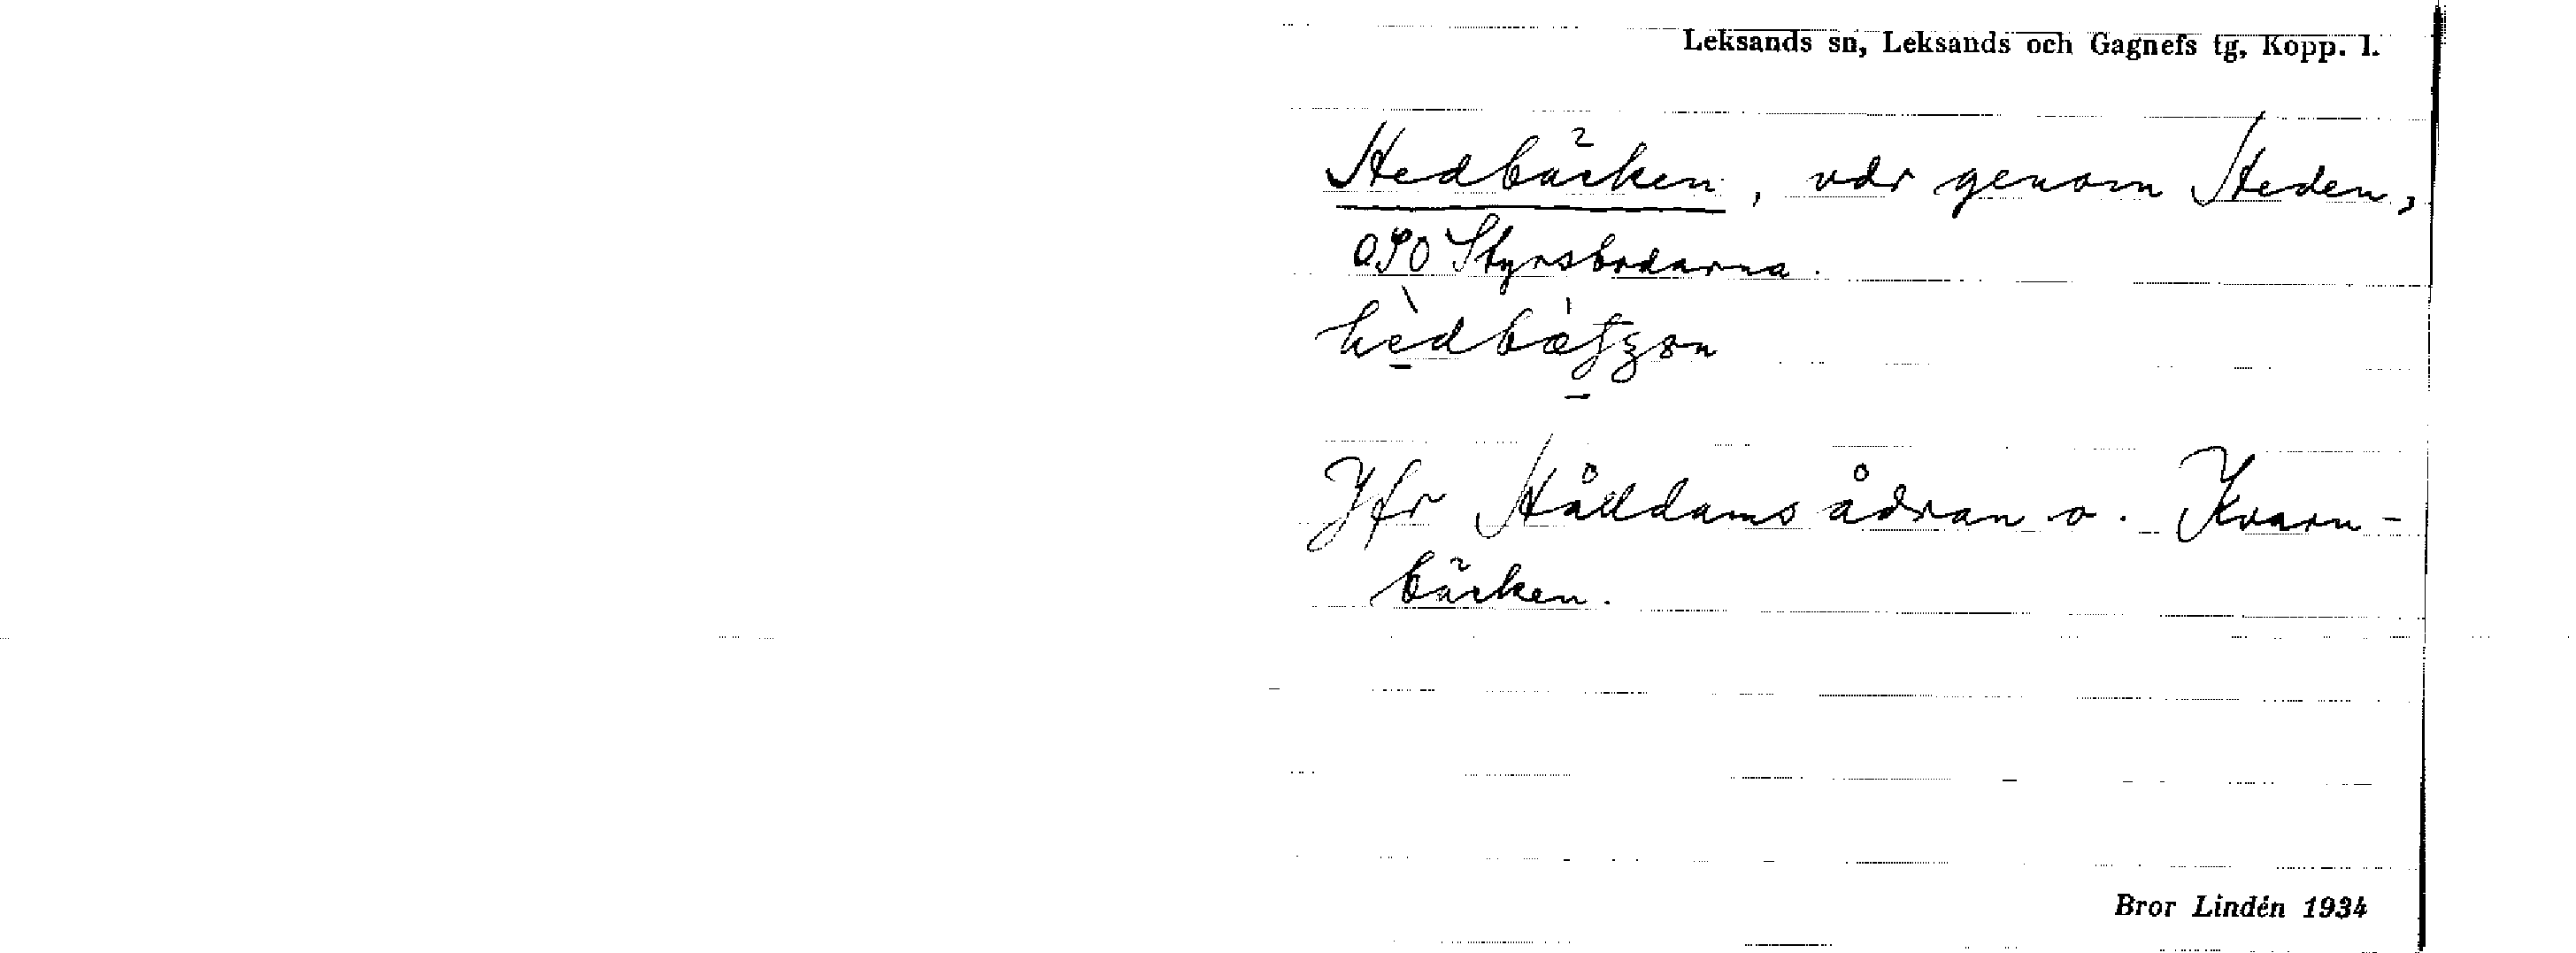 Leksands sn, Leksands och Gagnefs tg, Kopp. l.
Hedbäcken, vdr genom Heden,
OSO Styrsbodarna.
Jfr Hålldamsådran o. Kvarn-
bäcken.
Bror Lindén 1934